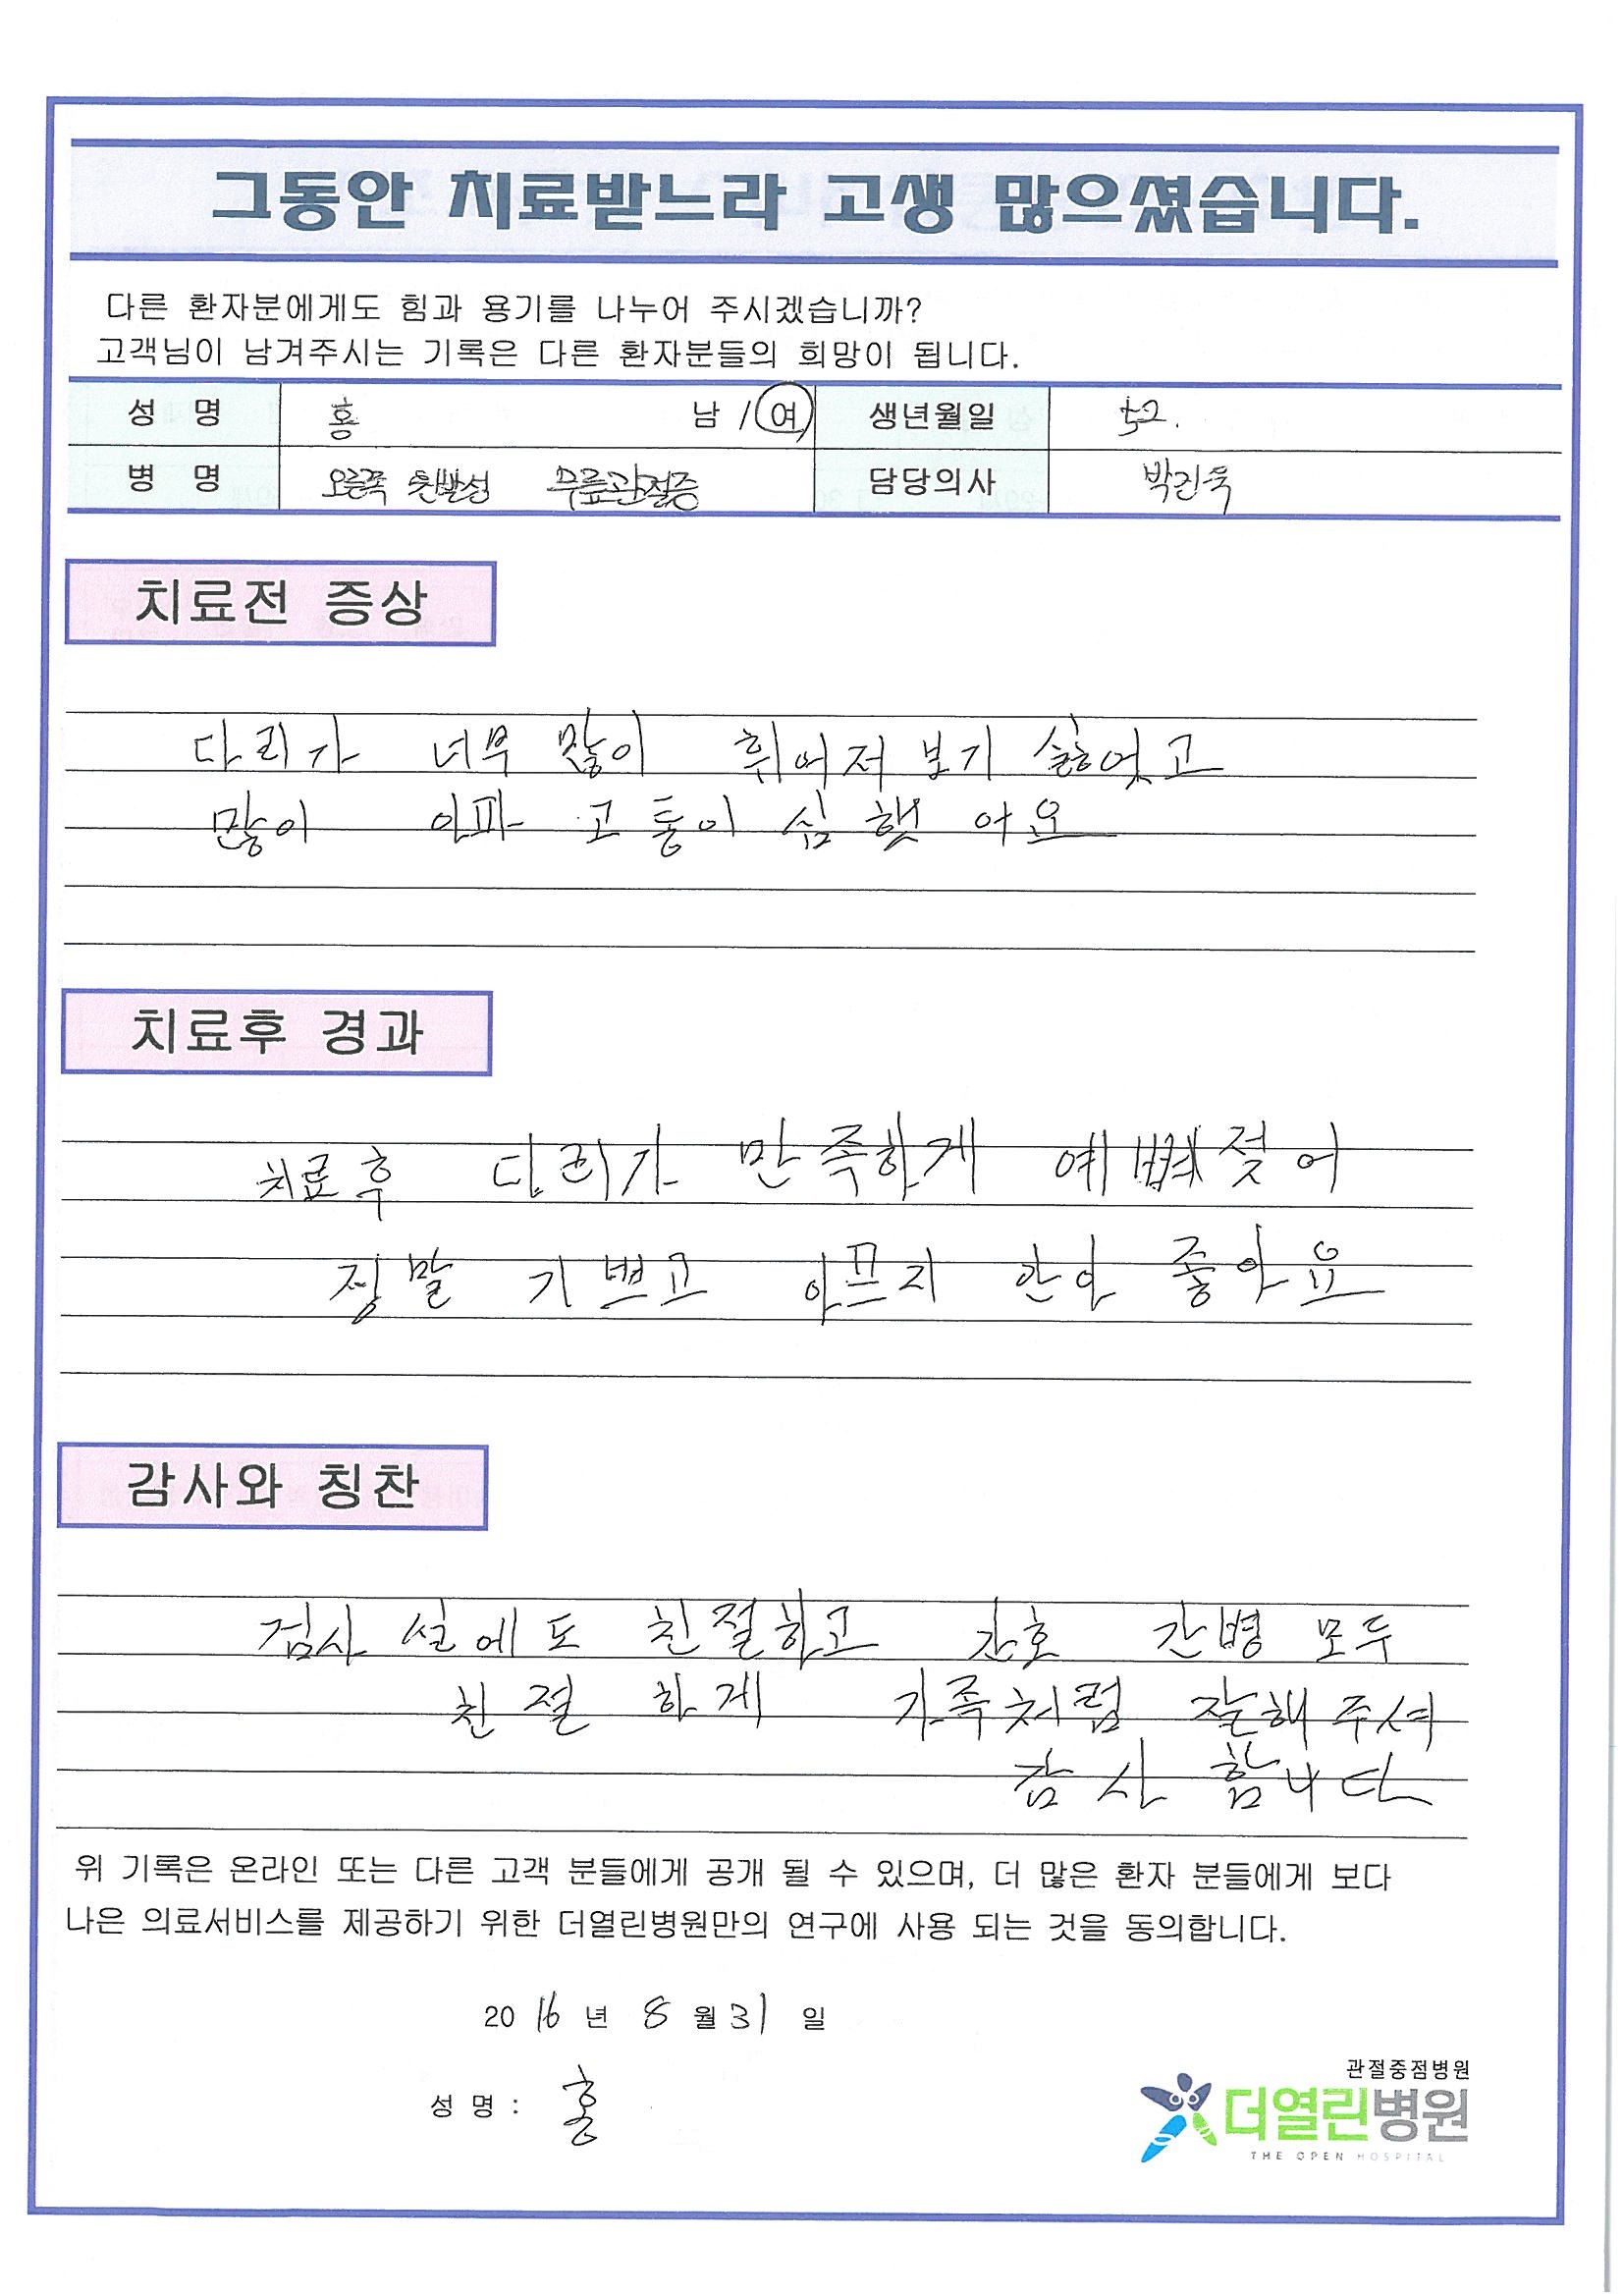 그동안 치료받느라 고생 많으셨습니다.
다른 환자분에게도 힘과 용기를 나누어 주시겠습니까?
고객님이 남겨주시는 기록은 다른 환자분들의 희망이 됩니다.
성 명 홍 남 / 여 생년월일 52.
병 명 오른쪽 원발성 무릎관절증 담당의사 박진욱
치료전 증상
다리가 너무 많이 휘어저 보기 싫헜고
많이 아파 고통이 심햇 아요
치료후 경과
치료후 다리가 만족하게 예 젖어
정말 기쁘고 아프지 안아 좋아요
감사와 칭찬
검사 실에도 친절하고 간호 간병 모두
친절 하게 가족처럼 잘해 주셔
감사 함니다
위 기록은 온라인 또는 다른 고객 분들에게 공개 될 수 있으며, 더 많은 환자 분들에게 보다
나은 의료서비스를 제공하기 위한 더열린병원만의 연구에 사용 되는 것을 동의합니다.
2016 년 8 월 31 일
성 명 : 홍
관절중점병원
더열린병원
THE OPEN HOSPITAL